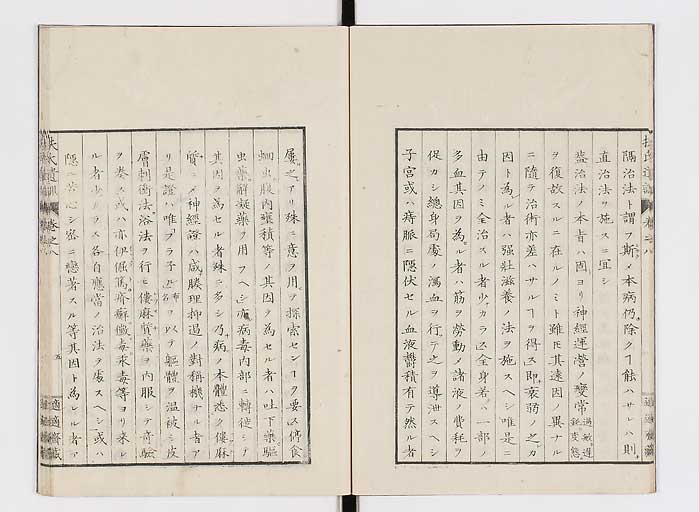 隔治法ト謂フ斯ノメ本病仍除クヿ能ハサレハ則
直治法ヲ施スニ宜シ
蓋治法ノ本旨ハ固ヨリ神經運營ノ變常過敏遲鈍変態
ヲ復故スルニ在ルノミト雖𪜈其遠因ノ異ナル
ニ隨テ治術亦差ハサルヿヲ得ス即衰弱ノ之カ
因ト為ル者ハ强壯滋養ノ法ヲ施スヘシ唯是ニ
由テノミ全治スル者少カラス全身若ハ一部ノ
多血其因ヲ為ル者ハ筋ヲ勞動メ諸液ノ費耗ヲ
促カシ總身局處ノ瀉血ヲ行テ之ヲ導泄スヘシ
子宮或ハ痔脈ニ隱伏セル血液欝積有テ然ル者
屢之アリ殊ニ意ヲ用ヲ探索センヿヲ要ス傳食
蛔虫腹内壅積等ノ其因ヲ為セル者ハ吐下藥驅
虫藥解凝藥ヲ用フヘシ病毒内部ニ轉徙シテ
其因ヲ為セル者殊ニ多シ乃病ノ本體悉ク僂麻
質ニメ神經證ハ咸腠理抑遏ノ對稱機ナル者ア
リ是證ハ唯フラ子ル布名ヲ以テ軀體ヲ温被シ皮
膚刺衝法浴法ヲ行ヒ僂麻質藥ヲ内服シテ奇驗
ヲ奏ス或ハ亦伊倔篤齊癬黴毒釆毒等ヨリ来レ
ル者少カラス各自應當ノ治法ヲ處スヘシ或ハ
隱ニ苦心シ密ニ戀著スル等其因ト為レル者ア
扶氏遺訓 卷之八
五
適適齋藏